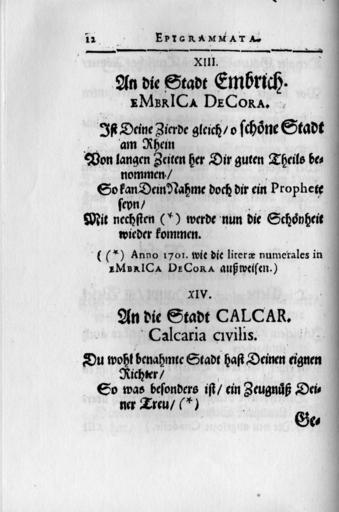 12 EPIGRAMMATA.
XIII.
An die Stadt Embrich.
EMBRICA DECORA.
Ist Deine Zierde gleich/ o schöne Stadt
am Rhein
Von langen Zeiten her Dir guten Theils be-
nommen/
So kan Dein Nahme doch dir ein Prophete
seyn/
Mit nechsten (*) werde nun die Schönheit
wieder kommen.
((*) Anno 1701. wie die literæ numerales in
EMBRICA DECORA außweisen.)
XIV.
An die Stadt CALCAR.
Calcaria civilis.
Du wohl benahmte Stadt hast Deinen eignen
Richter/
So was besonders ist/ ein Zeugnüß Dei-
ner Treu/ (*)
Ge-